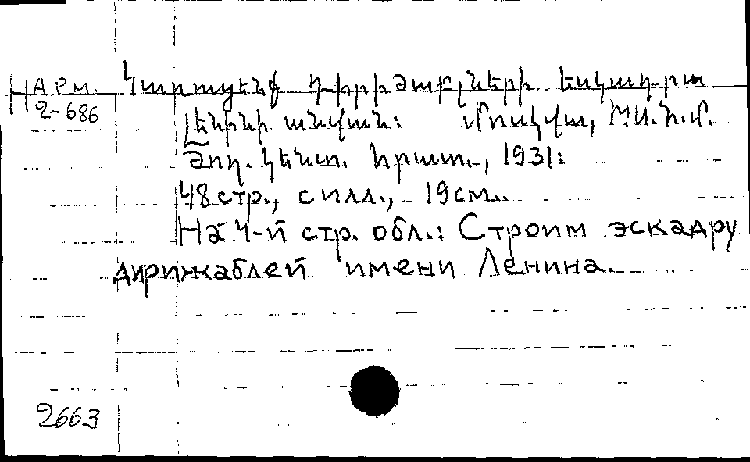 АРМ. Կառուցենք դիրիժաբլների եսկադրա
2-686
Լենինի անվան: Մոսկվա, Խ.Ս.Հ.Մ.
Ժող. կենտ. հրատ., 1931:
48 стр., с илл., 19 см.
На 4-й стр. обл.: Строим эскадру
дирижаблей имени Ленина.
2663